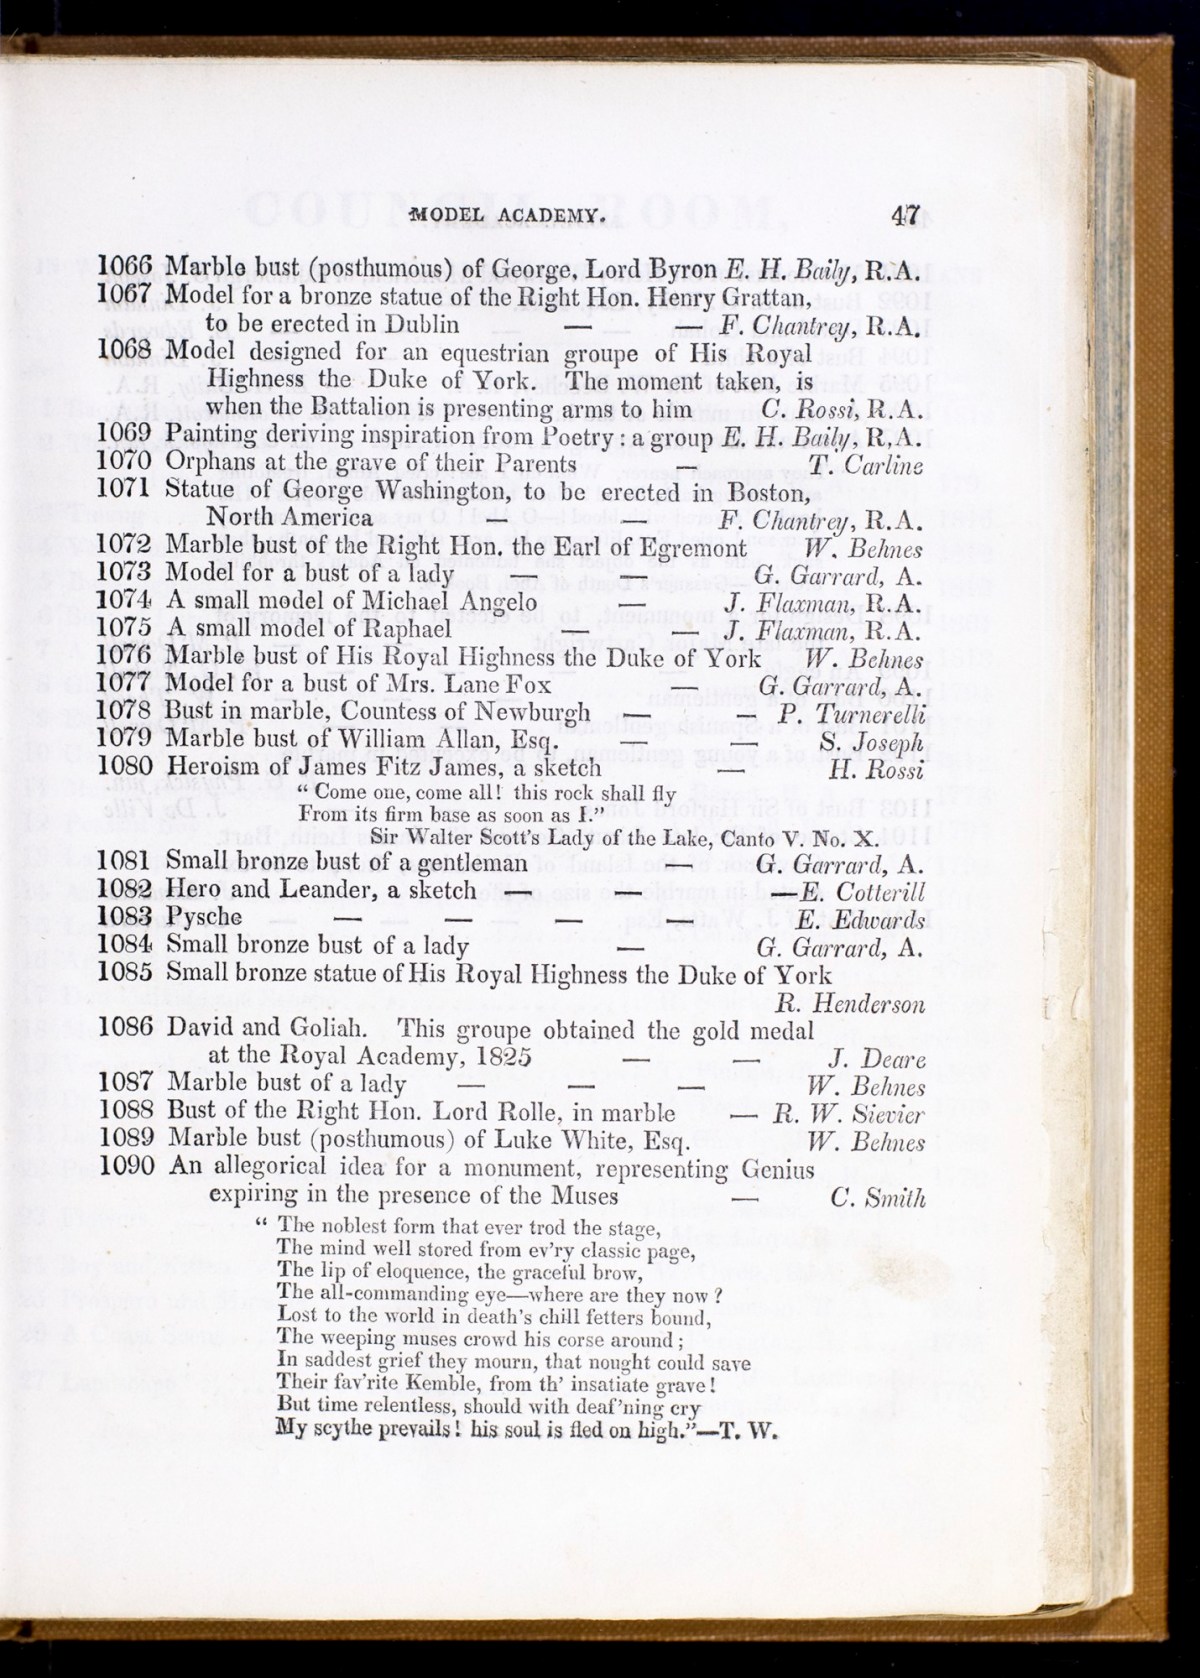 MODEL ACADEMY. 47
1066 Marble bust (posthumous) of George, Lord Byron E. H. Baily, R.A.
1067 Model for a bronze statue of the Right Hon. Henry Grattan,
to be erected in Dublin — — F. Chantrey, R.A.
1068 Model designed for an equestrian groupe of His Royal
Highness the Duke of York. The moment taken, is
when the Battalion is presenting arms to him C. Rossi, R.A.
1069 Painting deriving inspiration from Poetry: a group E. H. Baily, R.A.
1070 Orphans at the grave of their Parents — T. Carline
1071 Statue of George Washington, to be erected in Boston,
North America — — F. Chantrey, R.A.
1072 Marble bust of the Right Hon. the Earl of Egremont W. Behnes
1073 Model for a bust of a lady — — G. Garrard, A.
1074 A small model of Michael Angelo — J. Flaxman, R.A.
1075 A small model of Raphael — — J. Flaxman, R.A.
1076 Marble bust of His Royal Highness the Duke of York W. Behnes
1077 Model for a bust of Mrs. Lane Fox — G. Garrard, A.
1078 Bust in marble, Countess of Newburgh — — P. Turnerelli
1079 Marble bust of William Allan, Esq. — — S. Joseph
1080 Heroism of James Fitz James, a sketch — H. Rossi
“Come one, come all! this rock shall fly
From its firm base as soon as I.”
Sir Walter Scott’s Lady of the Lake, Canto V. No. X.
1081 Small bronze bust of a gentleman — — G. Garrard, A.
1082 Hero and Leander, a sketch — — E. Cotterill
1083 Pysche — — — — E. Edwards
1084 Small bronze bust of a lady — G. Garrard, A.
1085 Small bronze statue of His Royal Highness the Duke of York
R. Henderson
1086 David and Goliah. This groupe obtained the gold medal
at the Royal Academy, 1825 — — J. Deare
1087 Marble bust of a lady — — — W. Behnes
1088 Bust of the Right Hon. Lord Rolle, in marble — R. W. Sievier
1089 Marble bust (posthumous) of Luke White, Esq. W. Behnes
1090 An allegorical idea for a monument, representing Genius
expiring in the presence of the Muses — C. Smith
“ The noblest form that ever trod the stage,
The mind well stored from ev’ry classic page,
The lip of eloquence, the graceful brow,
The all-commanding eye—where are they now ?
Lost to the world in death’s chill fetters bound,
The weeping muses crowd his corse around ;
In saddest grief they mourn, that nought could save
Their fav’rite Kemble, from th’ insatiate grave !
But time relentless, should with deaf’ning cry
My scythe prevails ! his soul is fled on high.”—T. W.